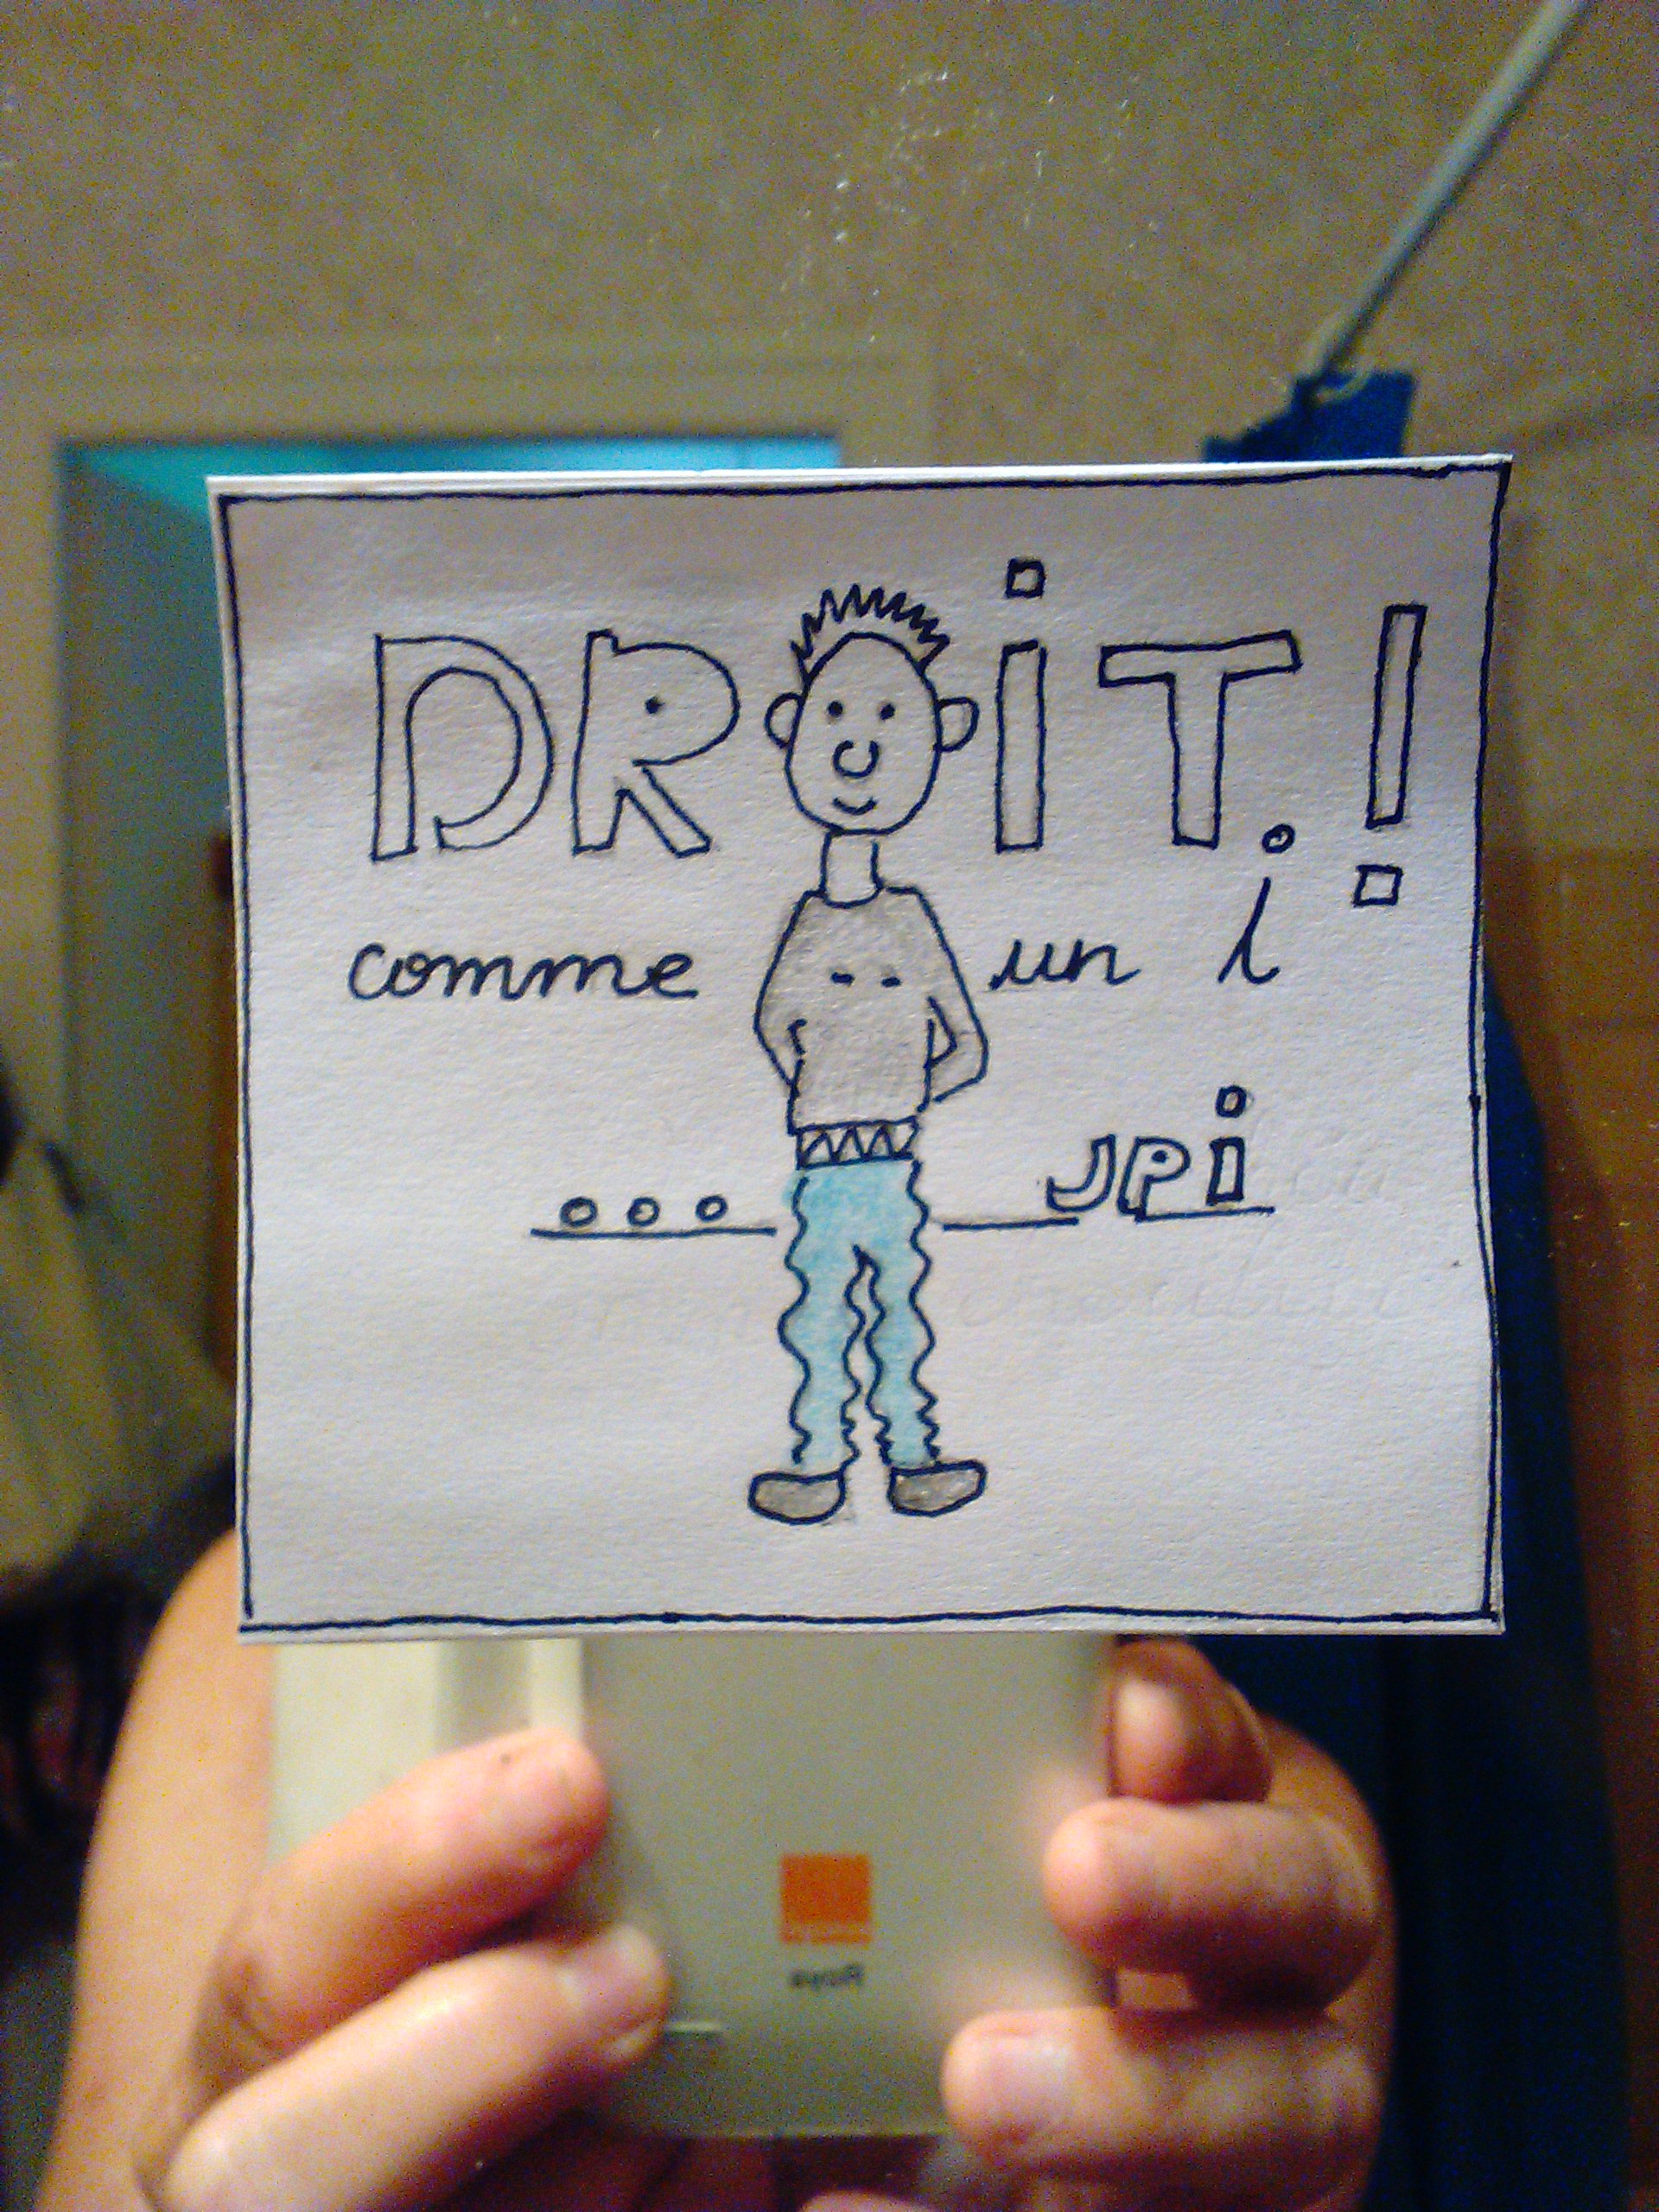 DROiT!
comme un i
... JPi
Roya